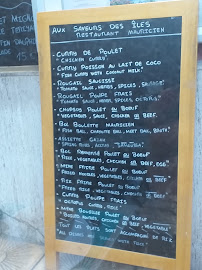 Aux Saveurs des Îles
Restaurant Mauricien
* Curry de Poulet
" Chicken curry "
* Curry Poisson au lait de coco
" Fish curry with coconut milk "
* Rougail Saucisse
" Tomato sauce, herbs, spices, sausage "
* Rougail Poulpe Frais
" Tomato sauce, herbs, spices, octopus "
* Chopsuey Poulet ou Boeuf
" Vegetables, sauce, chicken or beef "
* Bol Boulette Mauricien
" Fish ball, chayotte ball, meet ball, broth "
* Assiette Gajak
* Bol Renversé Poulet ou Boeuf
" Rice, vegetables, chicken or beef, egg "
* Mine Frite Poulet ou Boeuf
" Fried noodles, vegetables, chicken or beef "
* Riz Frite Poulet ou Boeuf
" Fried rice, vegetables, chicken or beef "
* Curry Poulpe Frais
" Octopus curry, rice "
* Mine Bouillie Poulet ou Boeuf
" Boiled noodles, chicken or beef, vegetable "
Tout les plats sont accompagné de riz
with rice "